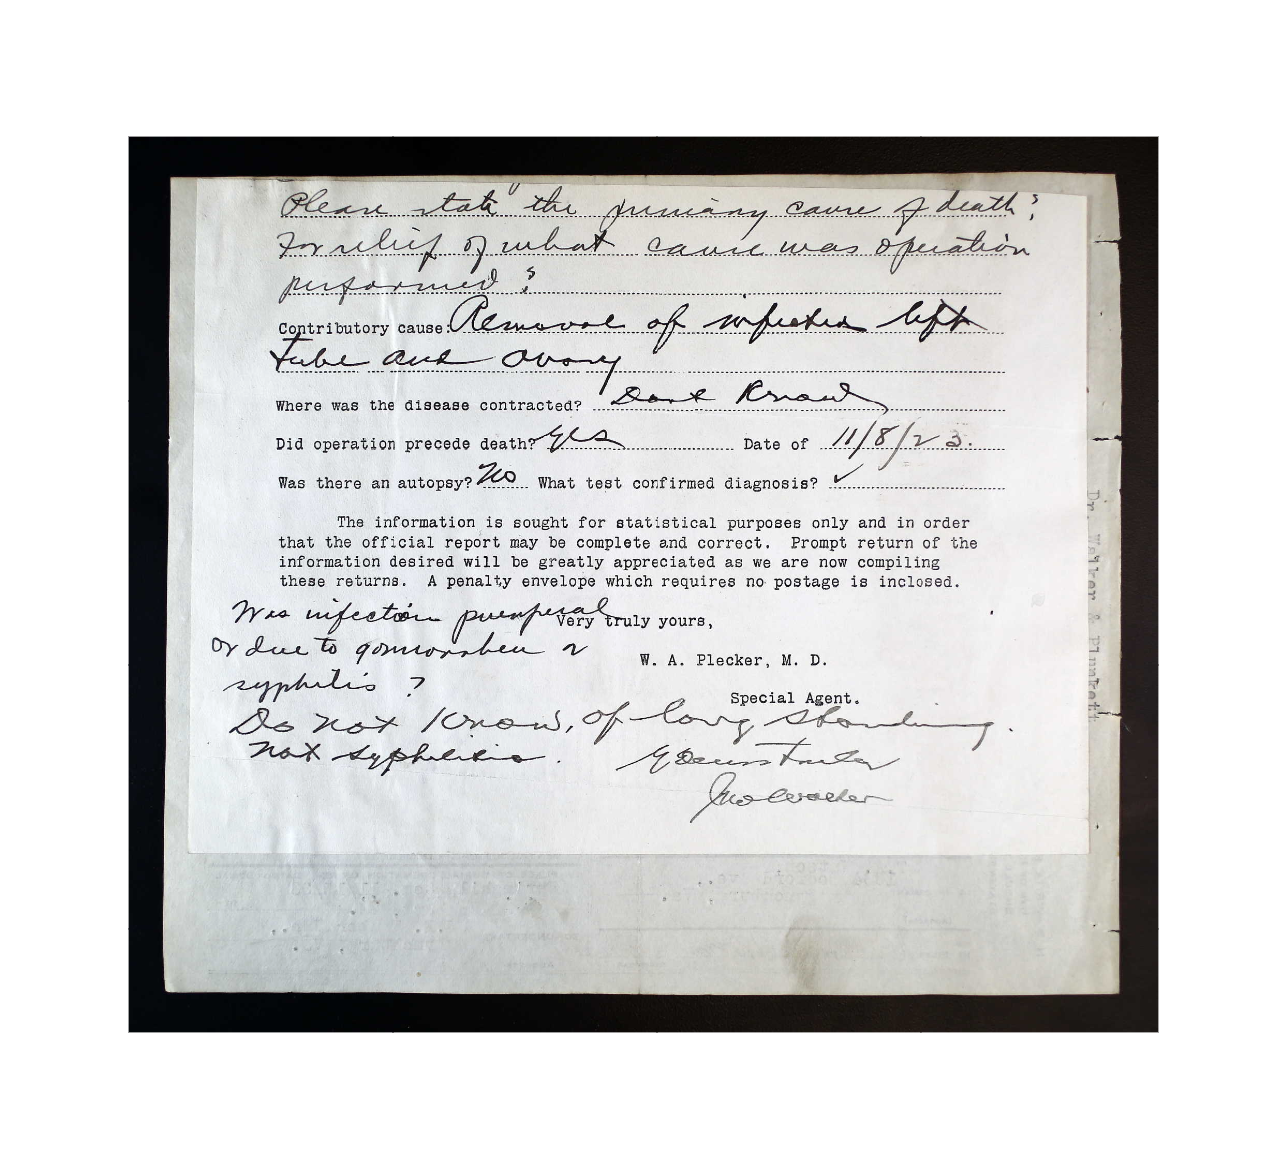 Please state the primary cause of death?
For relief of what cause was operation
performed?
Contributory cause: Removal of infected left
tube and ovary
Where was the disease contracted? Dont Know
Did operation precede death? Yes Date of 11/8/23.
Was there an autopsy? No What test confirmed diagnosis? ✓
The information is sought for statistical purposes only and in order
that the official report may be complete and correct. Prompt return of the
information desired will be greatly appreciated as we are now compiling
these returns. A penalty envelope which requires no postage is inclosed.
Was infection puerperal
Very truly yours,
or due to gonnorrhea or
W. A. Plecker, M. D.
syphilis?
Special Agent.
Do not Know, of long standing.
not syphilis.
Yours truly
Jno Walker